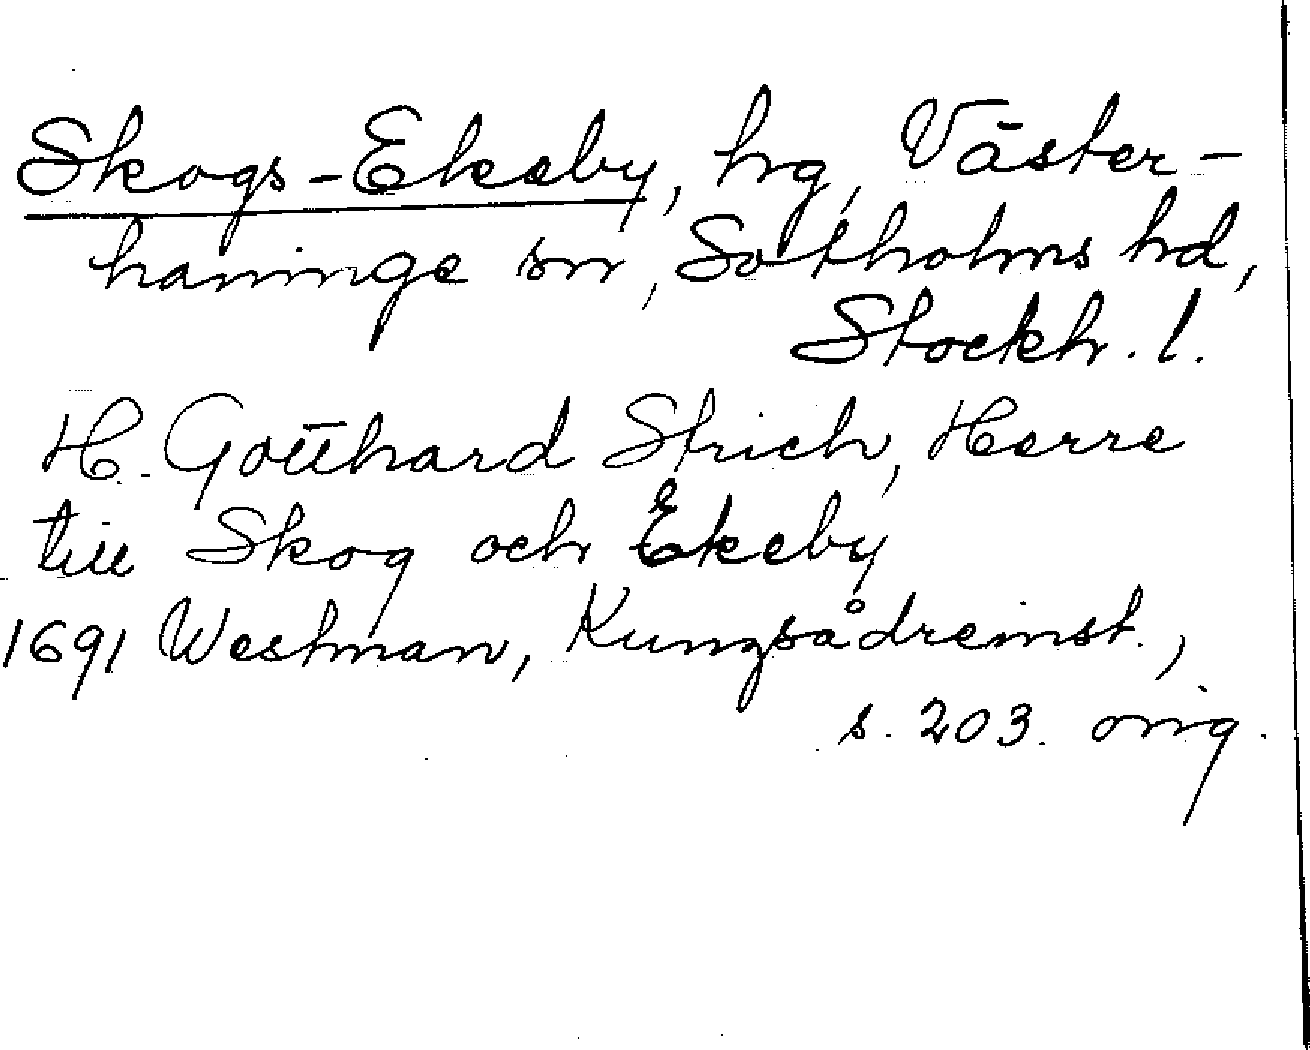 Skogs-Ekeby, hg, Väster-
haninge sn, Sotholms hd,
Stockh. l.
H. Gotthard Strich, Herre
till Skog och Ekeby
1691 Westman, Kungsådreinst.,
s. 203. orig.